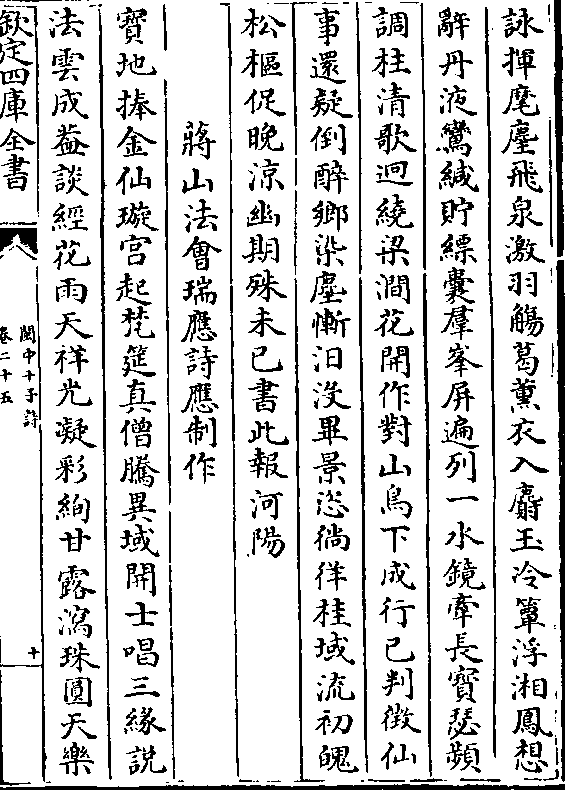 詠揮麾塵飛泉激羽觴葛薰衣入麝玉冷簟浮湘鳳想
辭丹液鸞緘貯縹囊羣峯屏遍列一水鏡牽長寶瑟頻
調柱清歌迥繞梁澗花開作對山鳥下成行已判徴仙
事還疑倒醉鄉染塵慚汨没畢景恣徜徉桂域流初魄
松樞促晚涼幽期殊未已書此報河陽
蔣山法會瑞應詩應制作
寳地捧金仙璇宫起梵筵真僧騰異域開士唱三縁説
法雲成葢談經花雨天祥光凝彩絢甘露瀉珠圓天樂
欽定四庫全書
閩中十子詩
卷二十五
十